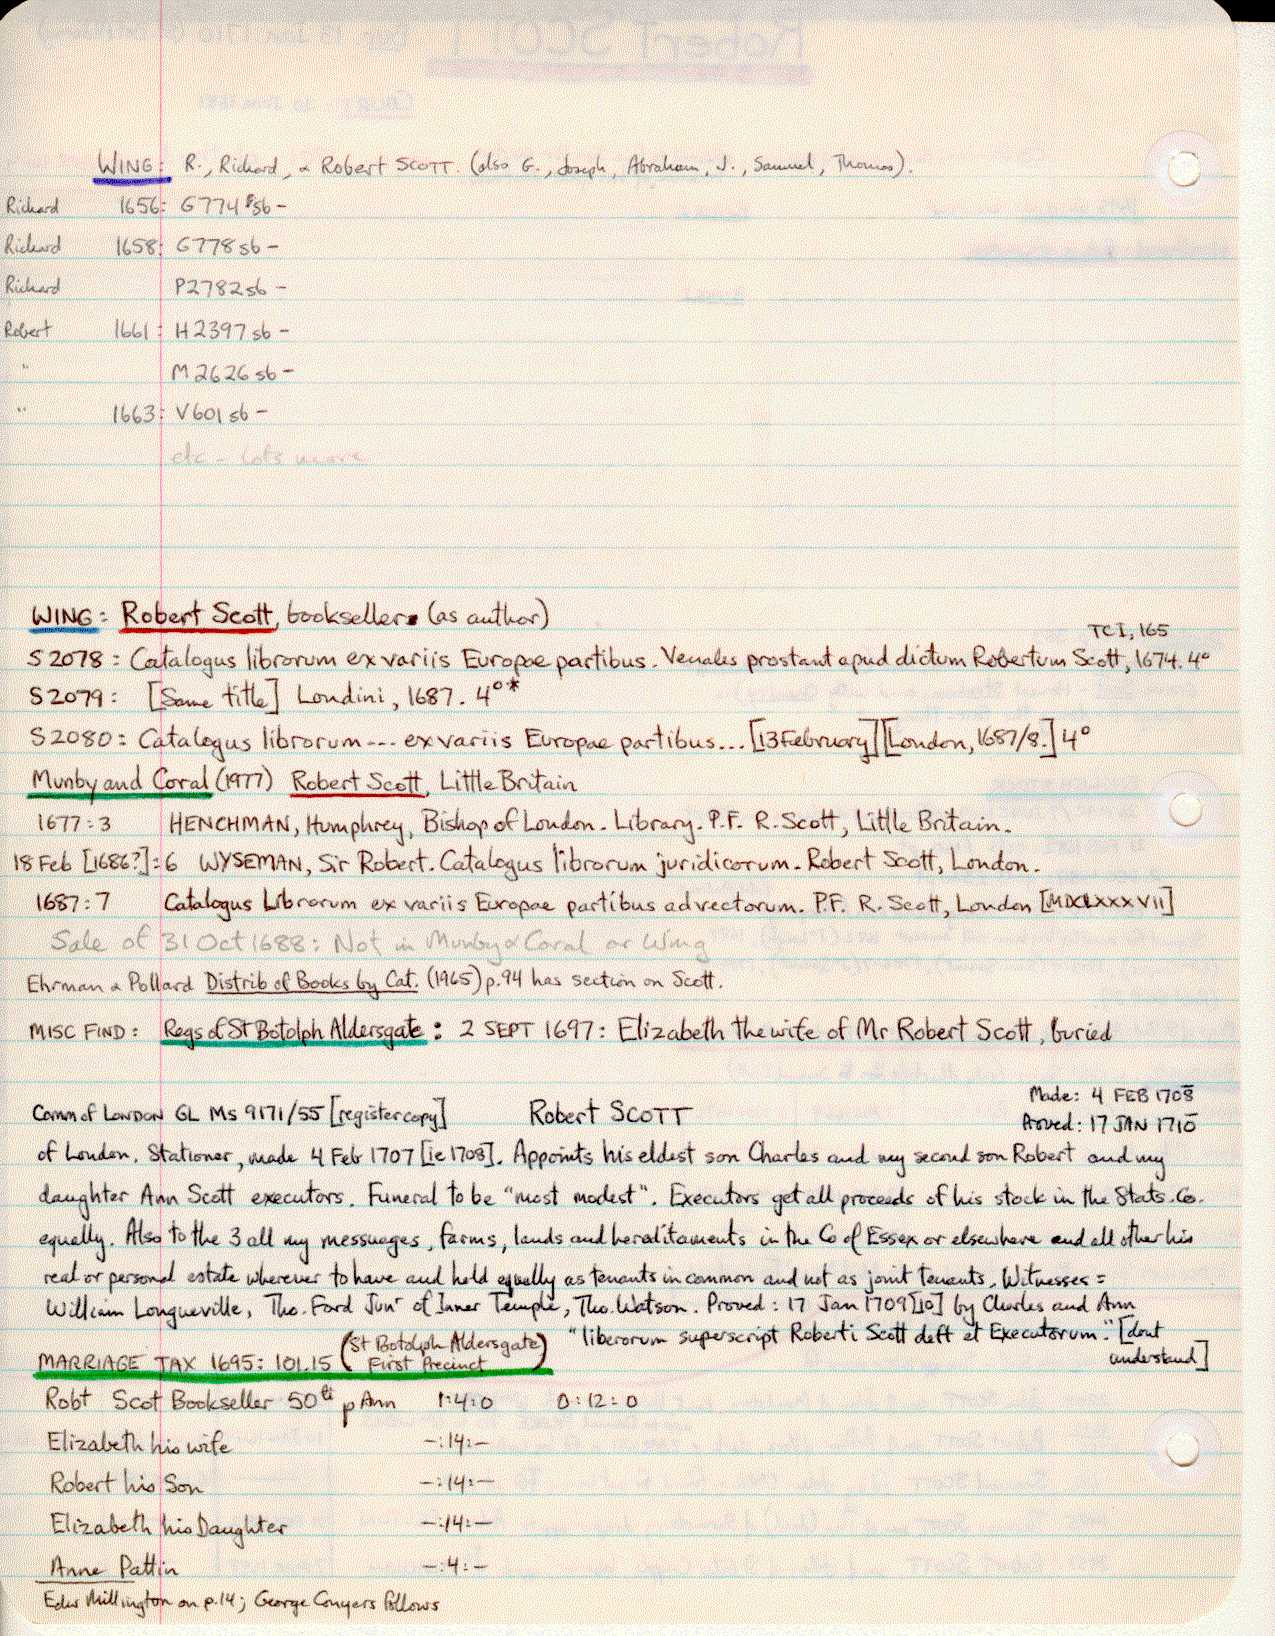 WING: R., Richard, & Robert SCOTT. (also G., Joseph, Abraham, J., Samuel, Thomas).
Richard 1656: G774 sb -
Richard 1658: G778 sb -
Richard P2782 sb -
Robert 1661: H2397 sb -
" M2626 sb -
" 1663: V601 sb -
etc - lots more
WING: Robert Scott, bookseller (as author)
TCI, 165
S2078: Catalogus librorum ex variis Europae partibus. Venales prostant apud dictum Robertum Scott, 1674. 4°
S2079: [Same title] Londini, 1687. 4°*
S2080: Catalogus librorum --- ex variis Europae partibus... [13 February] [London, 1687/8.] 4°
Munby and Coral (1977) Robert Scott, Little Britain
1677:3 HENCHMAN, Humphrey, Bishop of London. Library. P.F. R. Scott, Little Britain.
18 Feb [1686?]:6 WYSEMAN, Sir Robert. Catalogus librorum juridicorum. Robert Scott, London.
1687:7 Catalogus Librorum ex variis Europae partibus advectorum. P.F. R. Scott, London [MDCLXXXVII]
Sale of 31 Oct 1688: Not in Munby & Coral or Wing
Ehrman & Pollard Distrib of Books by Cat. (1965) p.94 has section on Scott.
MISC FIND: Regs of St Botolph Aldersgate: 2 SEPT 1697: Elizabeth the wife of Mr Robert Scott, buried
Made: 4 FEB 1708
Comm of LONDON GL Ms 9171/55 [register copy] Robert SCOTT
Proved: 17 JAN 1710
of London, Stationer, made 4 Feb 1707 [ie 1708]. Appoints his eldest son Charles and my second son Robert and my
daughter Ann Scott executors. Funeral to be "most modest". Executors get all proceeds of his stock in the Stats. Co.
equally. Also to the 3 all my messuages, farms, lands and hereditaments in the Co of Essex or elsewhere and all other his
real or personal estate wherever to have and hold equally as tenants in common and not as joint tenants. Witnesses =
William Longueville, Tho. Ford Junr of Inner Temple, Tho. Watson. Proved: 17 Jan 1709[10] by Charles and Ann
"liberorum superscript Roberti Scott deft et Executorum." [dont
understand]
MARRIAGE TAX 1695: 101.15 (St Botolph Aldersgate First Precinct)
Robt Scot Bookseller 50li p Ann 1:4:0 0:12:0
Elizabeth his wife -:14:-
Robert his Son -:14:-
Elizabeth his Daughter -:14:-
Anne Pattin -:4:-
Edw Millington on p.14; George Conyers follows